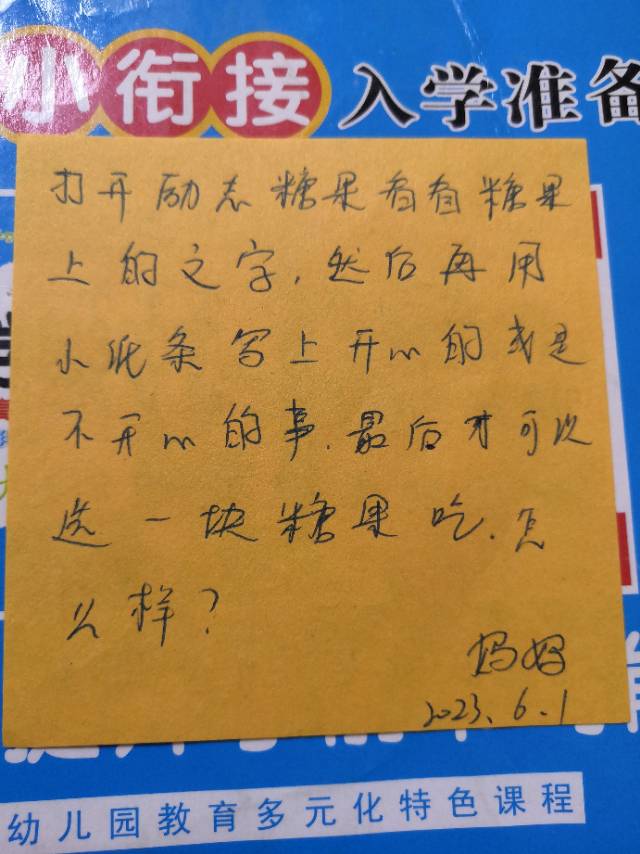 小衔接 入学准备
打开励志糖果看看糖果
上的文字，然后再用
小纸条写上开心的或是
不开心的事，最后才可以
选一块糖果吃，怎
么样？
妈妈
2023.6.1
幼儿园教育多元化特色课程